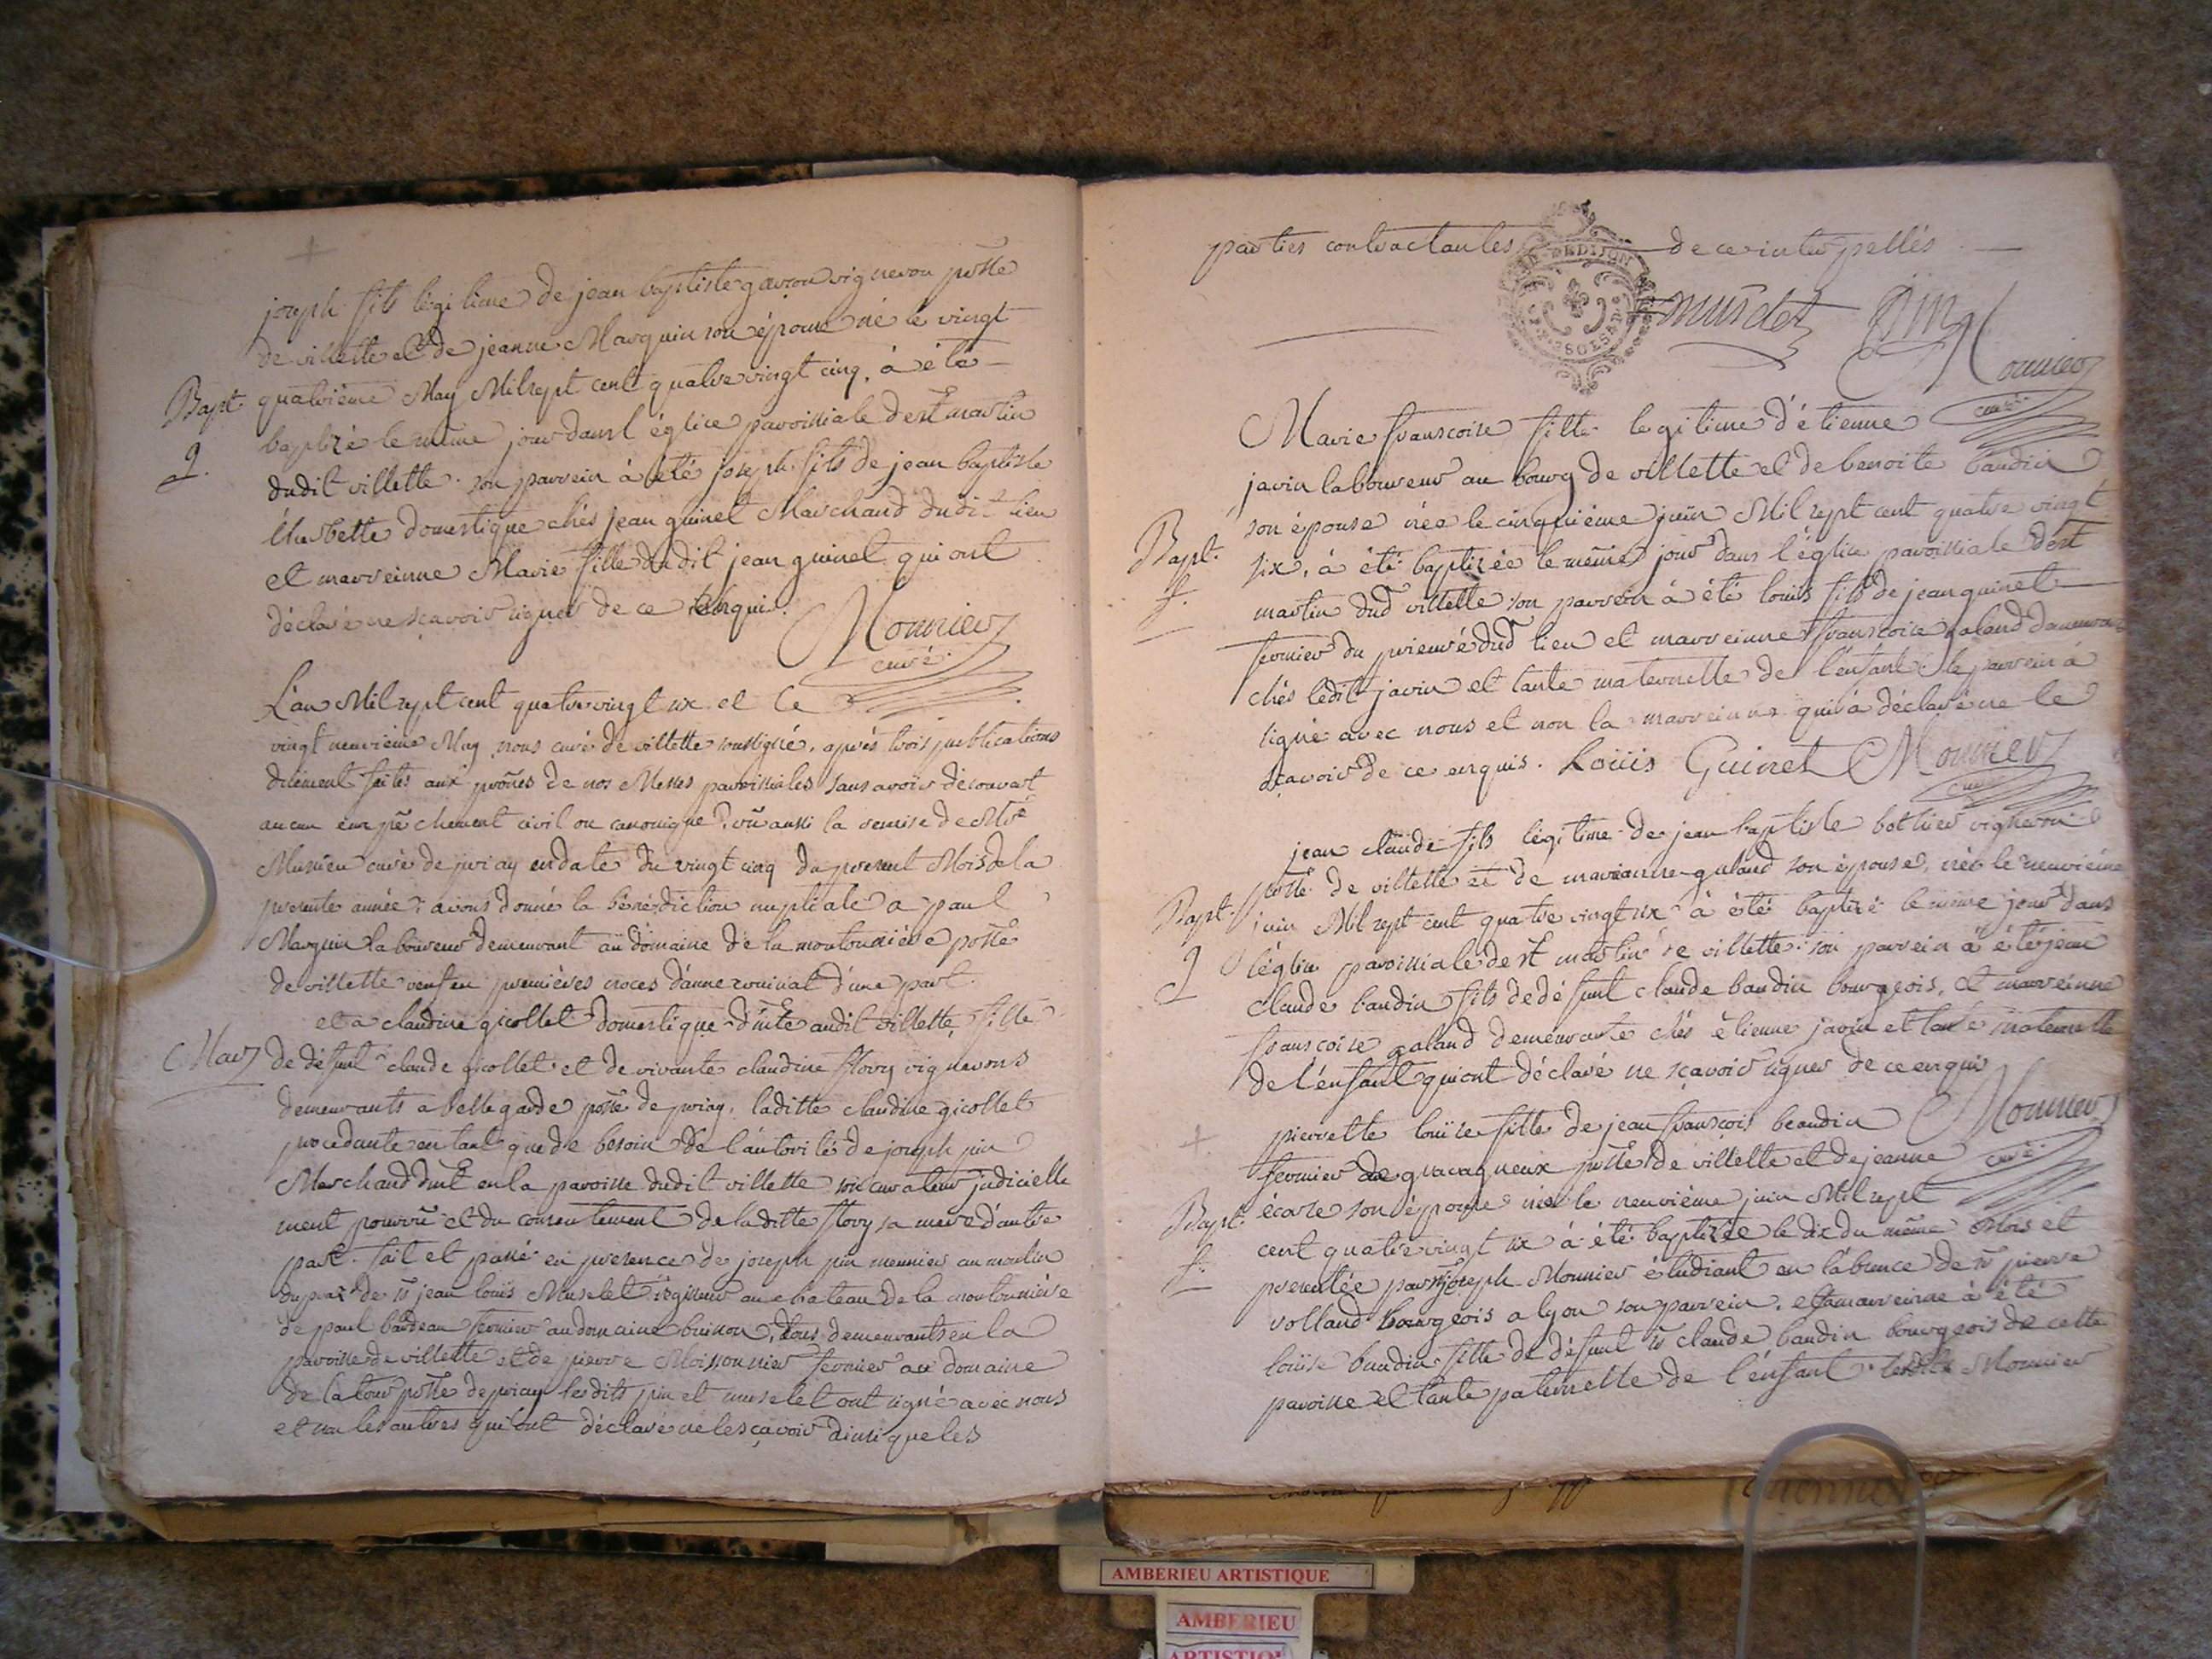 joseph fils légitime de jean baptiste gavion vigneron psse
de villette et de jeanne Marguin son épouse né le vingt
Bapt. quatrième May Mil sept cent quatre vingt cinq, à été
baptizé le même jour dans l'église paroissiale de st martin
g. dudit villette. son parrein à été joseph fils de jean baptiste
domestique chés jean guinet Marchand dudit lieu
et marreinne Marie fille dudit jean guinet qui ont
déclaré ne sçavoir signer de ce enquis.
Monnier
curé.
L'an Mil sept cent quatre vingt six et le
vingt neuvième May nous curé de villette soussigné, après trois publications
dûement faites aux prônes de nos Messes paroissiales sans avoir découvert
aucun empêchement civil ou canonique, vû aussi la remise de Mre
curé de priay en date du vingt cinq du présent Mois de la
presente année; avons donné la bénédiction nuptiale a paul
Marguin laboureur demeurant au domaine de la moutonnière psse
de villette veuf en premières noces d'anne d'une part.
et a claudine gicollet domestique audit villette, fille
Mar. de défunt claude gicollet et de vivante claudine flory vignerons
demeurants a bellegarde psse de priay, laditte claudine gicollet
procedante en tant que de besoin de l'autorité de joseph pin
Marchand en la paroisse dudit villette son curateur judicielle
ment pourvû et du consentement de laditte flory sa mere d'autre
part. fait et passé en presence de joseph pin meunier au moulin
de sr jean louis Muselet régisseur au chateau de la moutonnière
de paul bardeau fermier au domaine buisson, tous demeurants en la
paroisse de villette et de pierre Moissonnier fermier au domaine
de la tour psse de priay lesdits pin et muselet ont signé avec nous
et non les autres qui ont déclaré ne le sçavoir ainsi que les
parties contractantes de ce interpellés
muselet pin
Monnier
curé
Marie francoise fille legitime d'étienne
javin laboureur au bourg de villette et de benoite baudin
son épouse née le cinquième juin Mil sept cent quatre vingt
Bapt. six, à été baptizée le même jour dans l'église paroissiale de st
f. martin dud villette son parrein à été louis fils de jean guinet
fermier du prieuré dud lieu et marreinne francoise galand
chés ledit javin et tante maternelle de l'enfant: le parrein à
signé avec nous et non la marreinne qui à déclaré ne le
sçavoir de ce enquis. Loüis Guinet Monnier
curé
jean claude fils légitime de jean baptiste bothier vigneron
psse de villette et de marianne galand son épouse, né le neuvième
Bapt. juin Mil sept cent quatre vingt six à été baptizé le même jour dans
g l'église paroissiale de st martin de villette: son parrein à été jean
claude baudin fils de défunt claude baudin bourgeois, et marreinne
francoise galand demeurante chés étienne javin et tante maternelle
de l'enfant qui ont déclaré ne sçavoir signer de ce enquis
Monnier
curé
pierrette louise fille de jean françois beaudin
fermier de psse de villette et de jeanne
Bapt. son épouse née le neuvième juin Mil sept
f. cent quatre vingt six à été baptizée le dix du même Mois et
presentée par sr joseph Monnier étudiant en l'absence de sr pierre
volland bourgeois a lyon son parrein, et sa marreinne à été
loüise baudin fille de défunt sr claude baudin bourgeois de cette
paroisse et tante paternelle de l'enfant. Monnier
AMBERIEU ARTISTIQUE
AMBERIEU
ARTISTIQUE